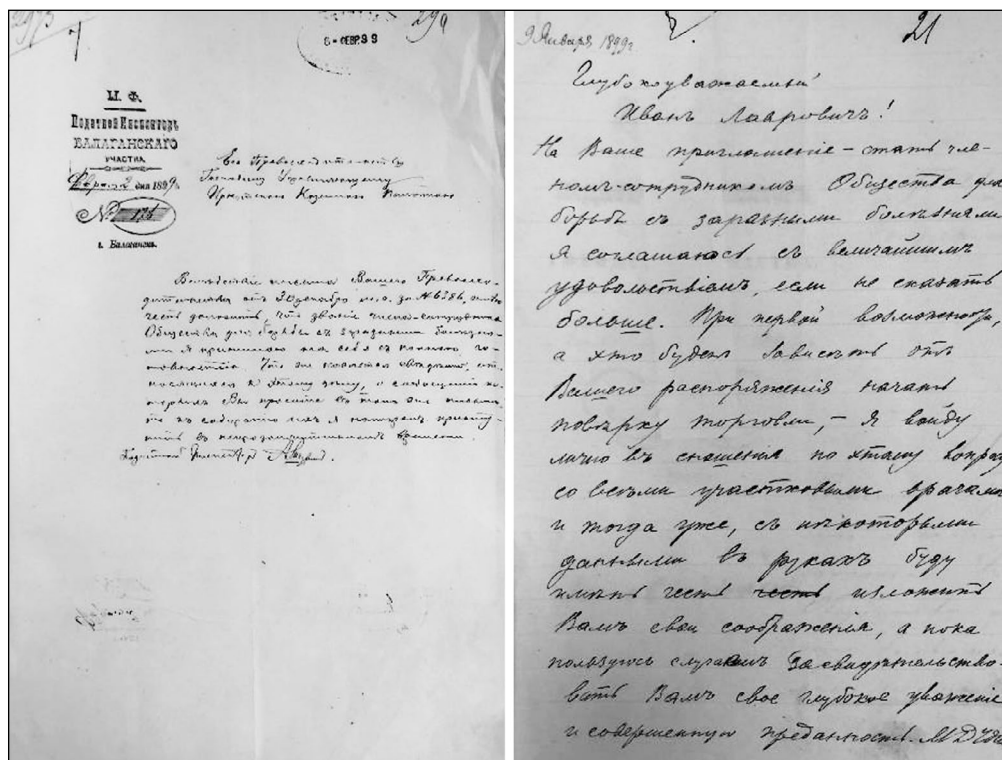 2973
299
6-ФЕВР.99
М. Ф.
Податной Инспекторъ
БАЛАГАНСКАГО
УЧАСТКА.
Февраля 2 дня 1899 г.
№ 175
г. Балаганскъ.
Его Превосходительству
Господину Управляющему
Иркутскою Казенною Палатою
Вслѣдствіе письма Вашего Превосхо-
дительства отъ 30 декабря за № 6386, имѣю
честь донести, что званіе члена-сотрудника
Общества для борьбы съ заразными болѣзня-
ми я принимаю на себя съ полною го-
товностью. Что же касается свѣдѣній, от-
носящихся къ этому дѣлу, о сообщеніи ко-
торыхъ Вы просите въ томъ же письмѣ,
то къ собиранію ихъ я
въ непродолжительномъ времени.
Податной Инспекторъ
9 Января 1899 г.
21
Глубокоуважаемый
Иванъ Лавровичъ!
На Ваше приглашеніе – стать чле-
номъ-сотрудникомъ Общества для
борьбы съ заразными болѣзнями
я соглашаюсь съ величайшимъ
удовольствіемъ, если не сказать
больше. При первой возможности,
а это будетъ зависѣть отъ
Вашего распоряженія начать
повѣрку торговли, – я войду
лично въ сношенія по этому вопросу
со всѣми участковыми врачами
и тогда уже, съ нѣкоторыми
данными въ рукахъ буду
имѣть честь честь изложить
Вамъ свои соображенія, а пока
пользуюсь случаемъ засвидѣтельство-
вать Вамъ свое глубокое уваженіе
и совершенную преданность.